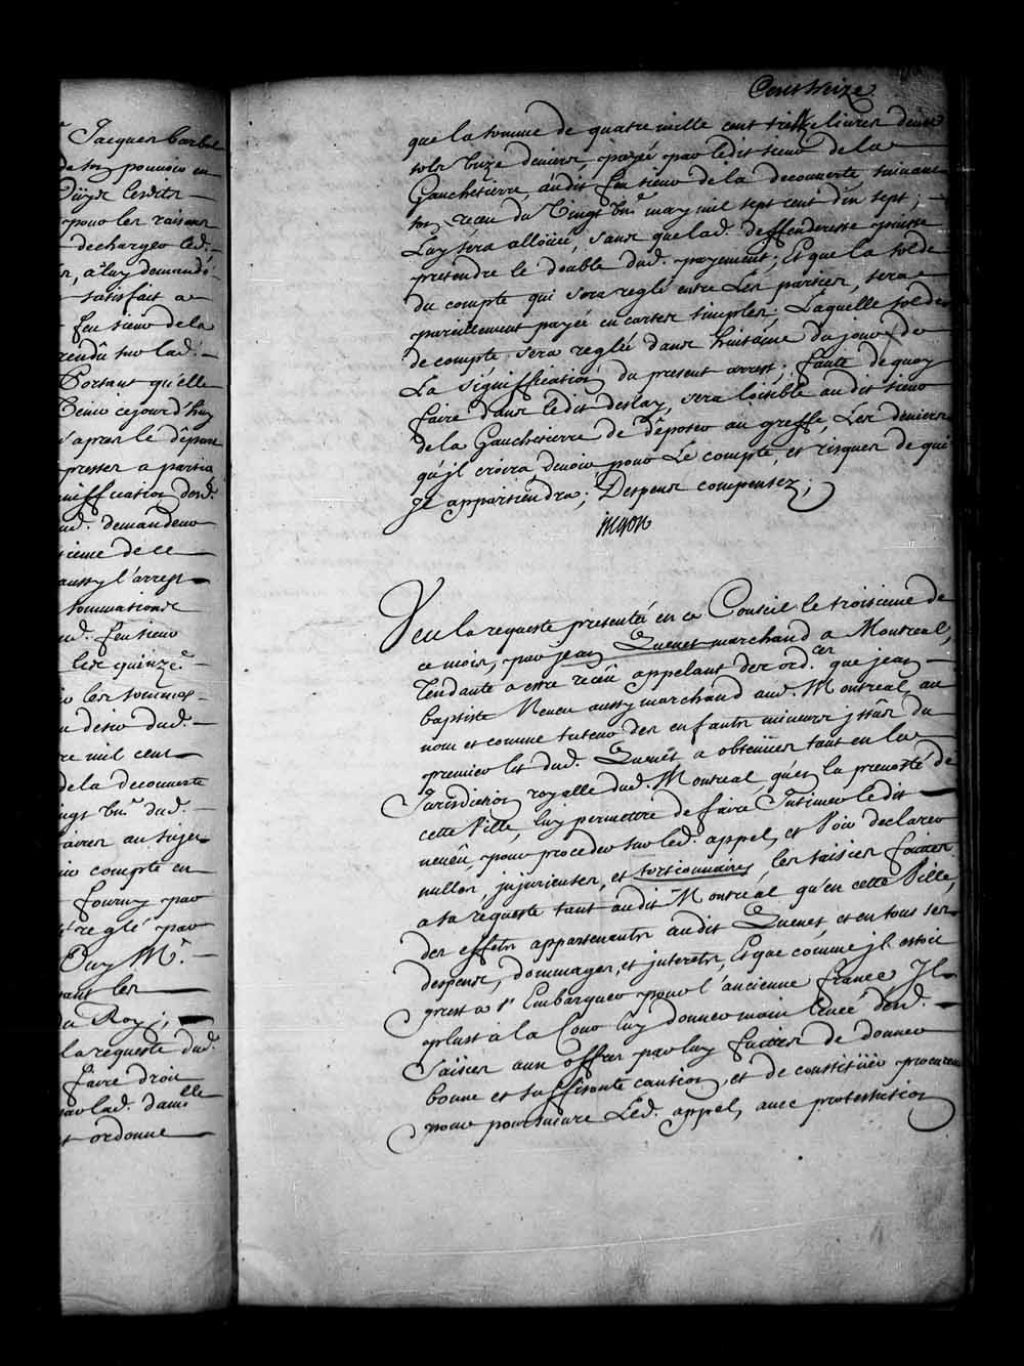 Jacques barbel
de son pouvoir en
pour les raisons
dechargeo led.
n, a luy demandé
satisfait a
feu sieur de la
rendu sur lad.
Portant qu'elle
ce jourd'huy
s apres le dépar
presser a partia
nuiffication dud.
ud. demandeur
ieme de ce
aussy l'arrest
sommations
ud. feu sieur
les quinze
les sommes
u desir dud.
re mil cent
de la decouverte
ings dud.
aires au sujet
compte en
fourny par
reglé par
Ouy Mr.
tant les
du Roy;
la requeste dud.
faire droit
par lad. damlle
t ordonne
Cent treize
que la somme de quatre mille cent treize livres douze
sols onze deniers payée par ledit sieur de la
Gauchetierre audit feu sieur de la decouverte suivant
son recu du Vingt uns may mil sept cent dix sept;
Luy sera alloüée, sans que lad. deffenderesse puisse
pretendre le double dud. payement; Et que la solde
du compte qui sera reglé entre Les parties, sera
pareillement payée en cartes simples; Laquelle solde
de compte sera reglée dans huitaine du jour de
La signiffication du present arrest; faute de quoy
faire dans ledit delay, sera loisible audit sieur
de la Gauchetierre de déposer au greffe, Les deniers
qu'jl croira devoir, pour Le compte, et risques de qui
Jl appartiendra; Despens compensez;
Begon
Veu la requeste presentée en ce Conseil le troisieme de
ce mois, par jean Quenet marchand a Montreal,
Tendante a estre receu appelant des ord.ces que jean
baptiste Neveu aussy marchand aud. Montreal, au
nom et comme tuteur des enfants mineurs jssus du
premier lit dud. Quenet a obtenües tant en la
Jurisdiction royalle dud. Montreal, qu'en la prevosté de
cette Ville, luy permettre de faire Intimer ledit
neveu, pour proceder sur led. appel, et Voir declarer
nulles, jnjurieuses, et tortionnaires, les saisies faites
a sa requeste tant audit Montreal qu'en cette Ville,
des effets appartenants audit Quenet, et en tous ses
despens, dommages, et jnterets, Et que comme jl estoit
prest a s'Embarquer pour l'ancienne france Jl
plust à la Cour luy donner main levée desd.
Saisies aux offres par luy faites de donner
bonne et suffisante caution, et de constitüer procureur
pour poursuivre Led. appel, avec protestation